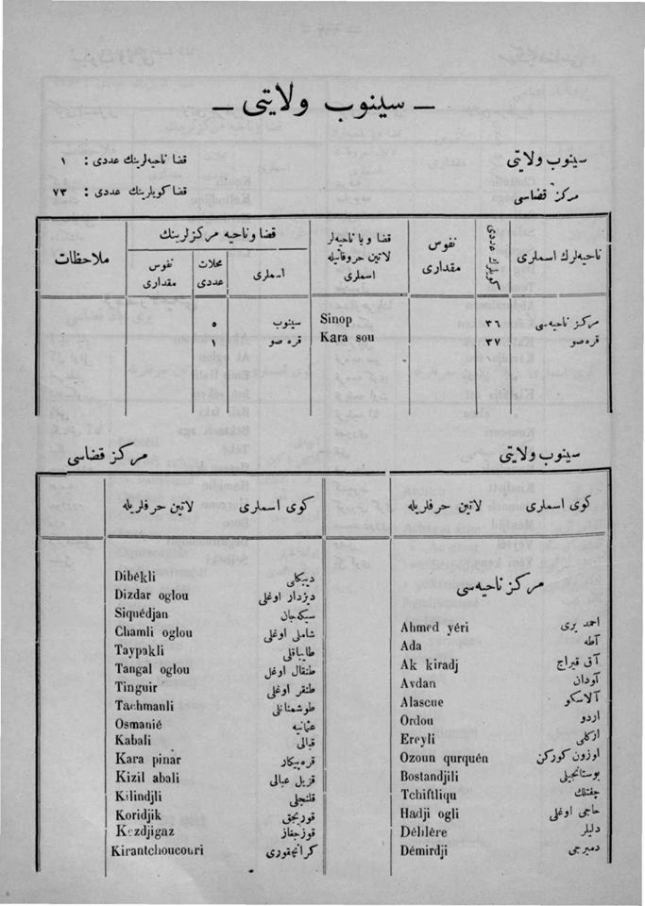 — سینوب ولایتی —
سینوب ولایتی
مرکز قضاسی
قضا ناحیه‌لرینك عددی : ١
قضا کویلرینك عددی : ٧٣
ناحیه‌لرك اسملری
کویلرك عددی
نفوس مقداری
قضا و یا ناحیه‌لر لاتین حروفاتیله اسملری
قضا و ناحیه مرکزلرینك
اسملری
محلات عددی
نفوس مقداری
ملاحظات
مرکز ناحیه‌سی ٣٦ Sinop سینوب ٥
قره‌صو ٣٧ Kara sou قره صو ١
سینوب ولایتی
مرکز قضاسی
کوی اسملری لاتین حرفلریله
مرکز ناحیه‌سی
احمد یری Ahmed yéri
آطه Ada
آق قیراج Ak kiradj
آودان Avdan
آلاسکو Alascue
اردو Ordou
ارکلی Ereyli
اوزون کورکن Ozoun qurquén
بوستانجیلی Bostandjili
چفتلك Tchiftliqu
حاجی اوغلی Hadji ogli
دلیلر Délilére
دمیرجی Démirdji
کوی اسملری لاتین حرفلریله
دیبکلی Dibékli
دیزدار اوغلی Dizdar oglou
سیکه‌جان Siquédjan
شاملی اوغلی Chamli oglou
طایباقلی Taypakli
طنقال اوغل Tangal oglou
طنقر اوغلی Tinguir
طوشمانلی Tachmanli
عثمانیه Osmanié
قبالی Kabali
قره‌پیکار Kara pinar
قزیل عبالی Kizil abali
قلنجلی Kilindjli
قوریجق Koridjik
قوزجغاز Kezdjigaz
کرانچقوری Kirantchoucouri